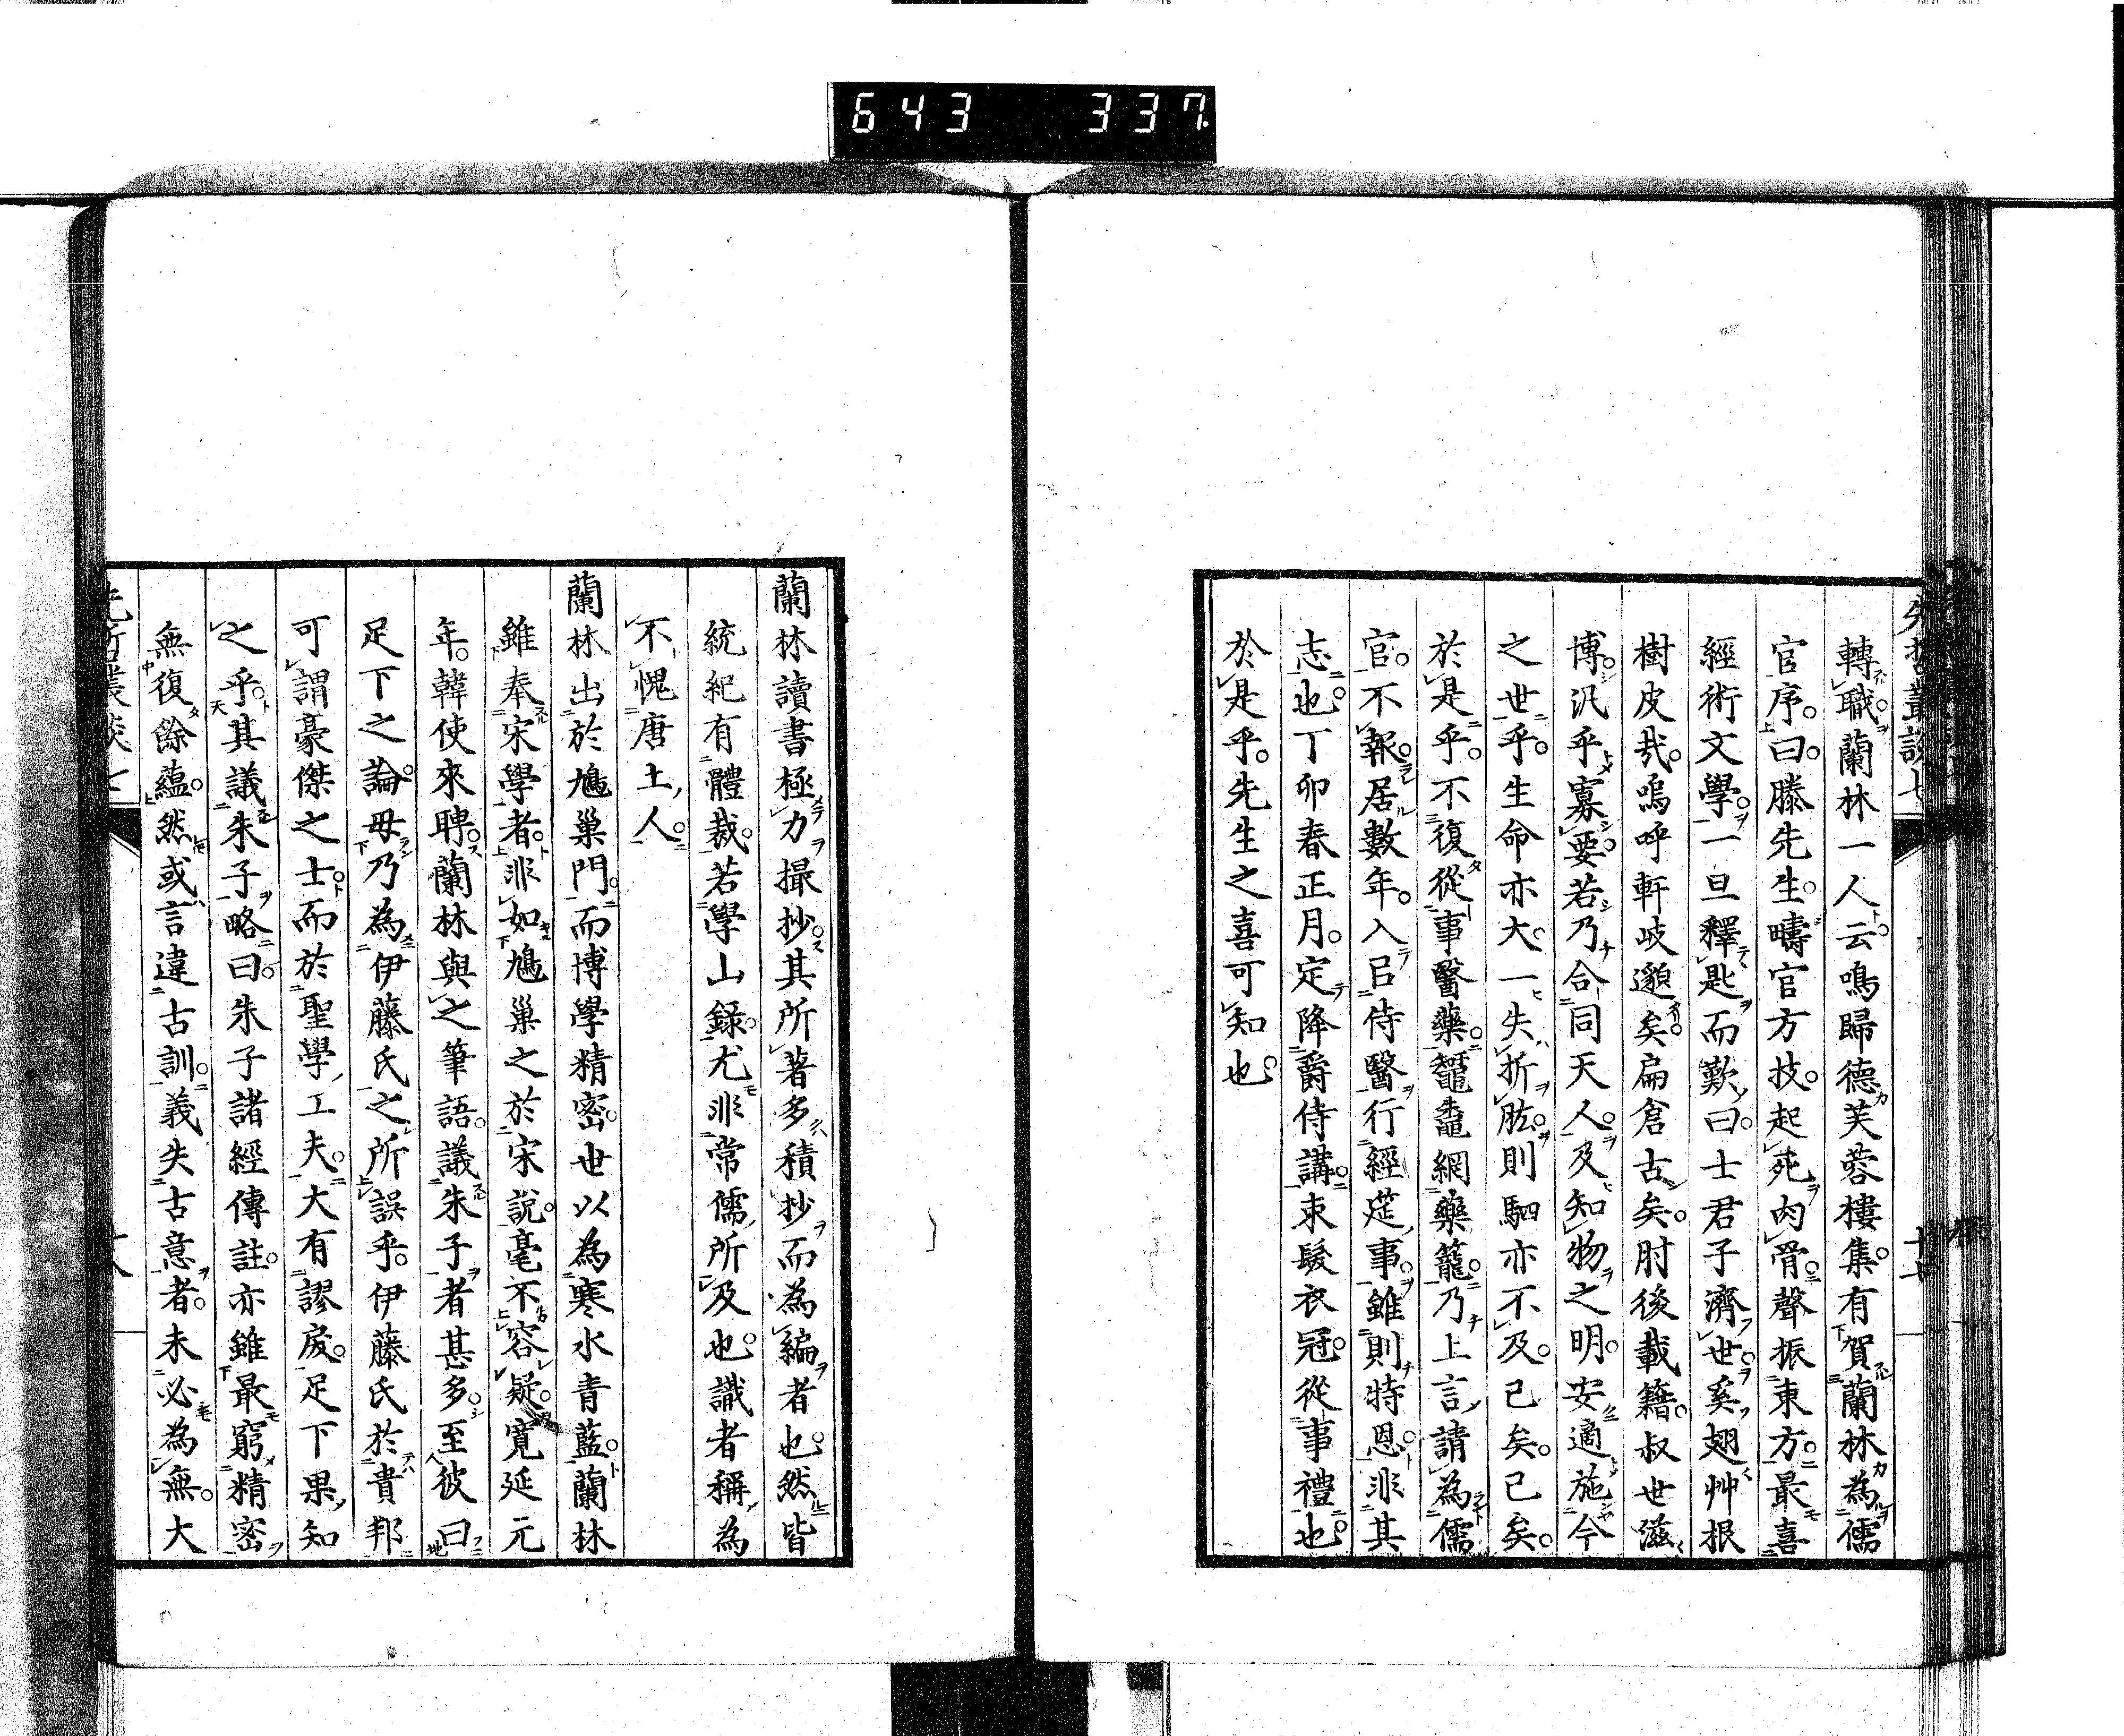 643 337
先哲叢談七 十七
轉職蘭林一人云鳴歸德芙蓉樓集有賀蘭林為儒
官序曰滕先生疇官方技起死肉骨聲振東方最喜
經術文學一旦釋匙而歎曰士君子濟世奚翅艸根
樹皮哉嗚呼軒岐邈矣扁倉古矣肘後載籍叔世滋
博汎乎寡要若乃合同天人及知物之明安適施今
之世乎生命亦大一失折肱則駟亦不及已矣已矣
於是乎不復從事醫藥蠶網藥籠乃上言請為儒
官不報居數年入㠯侍醫行經筵事雖則特恩非其
志也丁卯春正月定降爵侍講束髮衣冠從事禮也
於是乎先生之喜可知也
蘭林讀書極力撮抄其所著多積抄而為編者也然皆
統紀有體裁若學山錄尤非常儒所及也識者稱為
不愧唐土人
蘭林出於鳩巢門而博學精密世以為寒水青藍蘭林
雖奉宋學者非如鳩巢之於宋說毫不容疑寬延元
年韓使來聘蘭林與之筆語議朱子者甚多至彼曰
足下之論毋乃為伊藤氏之所誤乎伊藤氏於貴邦
可謂豪傑之士而於聖學工夫大有謬戾足下果知
之乎其議朱子略曰朱子諸經傳註亦雖最窮精密
無復餘蘊然或言違古訓義失古意者未必為無大
先哲叢談七